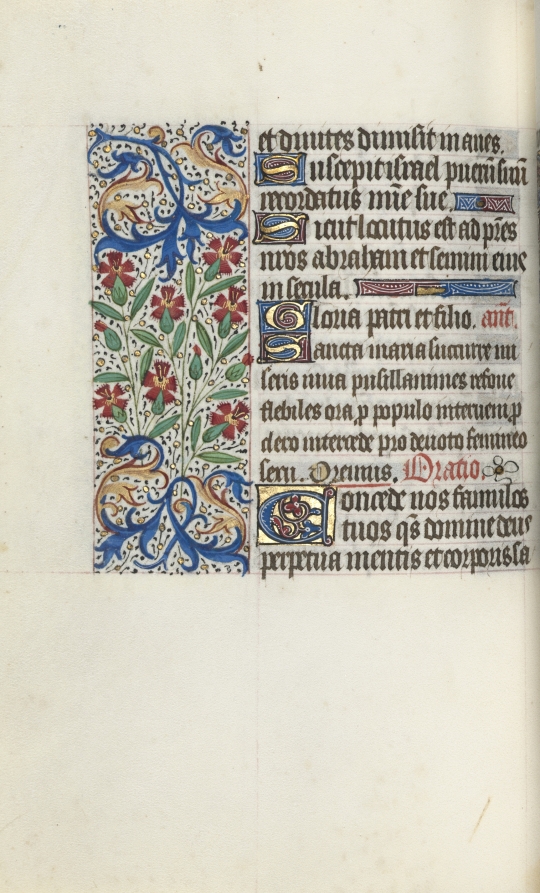 et diuites dimisit inanes.
Suscepit israel pueru suu
recordatus mie sue.
Sicut locutus est ad pres
nros abraham et semini eius
in secula.
Gloria patri et filio. ant.
Sancta maria succurre mi
seris iuua pusillanimes refoue
flebiles ora p populo interueni p
clero intercede pro deuoto femineo
sexu. Oremus. Oratio
Concede nos famulos
tuos qs domine deus
perpetua mentis et corporis sa